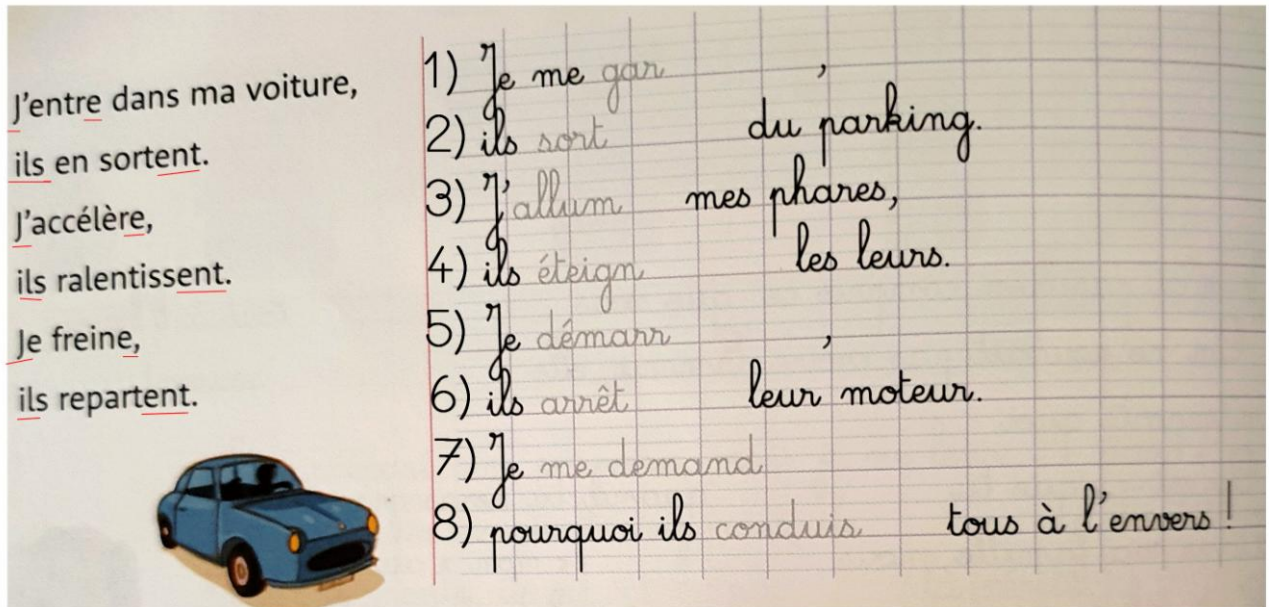 J'entre dans ma voiture,
ils en sortent.
J'accélère,
ils ralentissent.
Je freine,
ils repartent.
1) Je me gar ,
2) ils sort du parking.
3) J'allum mes phares,
4) ils éteign les leurs.
5) Je démarr ,
6) ils arrêt leur moteur.
7) Je me demand
8) pourquoi ils conduis tous à l'envers !